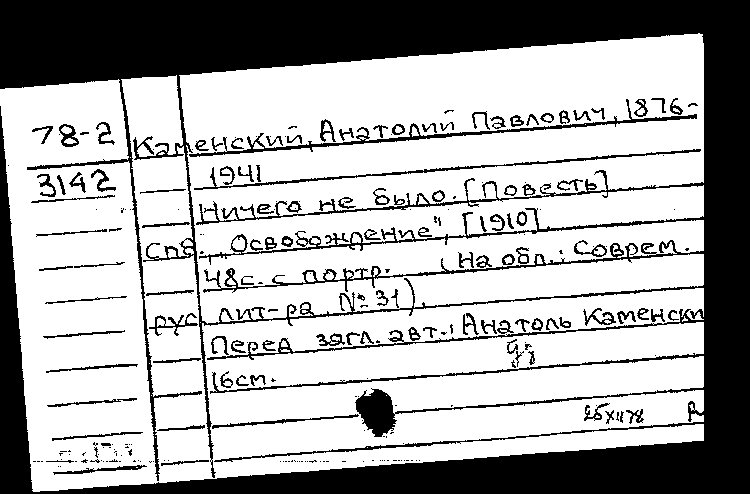 78-2 Каменский, Анатолий Павлович, 1876-
3142 1941
Ничего не было. [Повесть]
Спб., „Освобождение", [1910].
48с. с портр. (На обл.: Соврем.
рус. лит-ра. № 31).
Перед загл. авт.: Анатоль Каменски
16см.
25XII78